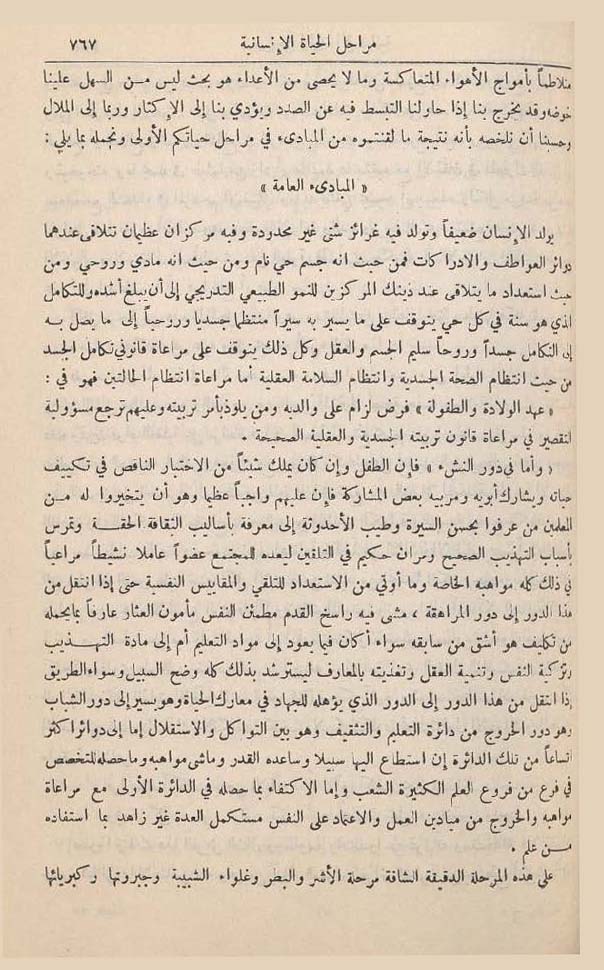 مراحل الحياة الإنسانية ٧٦٧
متلاطماً بأمواج الأهواء المتعاكسة وما لا يحصى من الأعداء هو بحث ليس من السهل علينا
خوضه وقد يخرج بنا إذا حاولنا التبسط فيه عن الصدد ويؤدي بنا إلى الإكثار وربما إلى الملال
وحسبنا أن نلخصه بأنه نتيجة ما لقنتموه من المبادىء في مراحل حياتكم الأولى ونجمله بما يلي :
« المبادىء العامة »
يولد الإنسان ضعيفاً وتولد فيه غرائز شتى غير محدودة وفيه مركزان عظيمان تتلاقى عندهما
دوائر العواطف والادراكات فمن حيث انه جسم حي نام ومن حيث انه مادي وروحي ومن
حيث استعداد ما يتلاقى عند ذينك المركزين للنمو الطبيعي التدريجي إلى أن يبلغ أشده وللتكامل
الذي هو سنة في كل حي يتوقف على ما يسير به سيراً منتظما جسديا وروحياً إلى ما يصل به
إلى التكامل جسداً وروحاً سليم الجسم والعقل وكل ذلك يتوقف على مراعاة قانوني تكامل الجسد
من حيث انتظام الصحة الجسدية وانتظام السلامة العقلية أما مراعاة انتظام الحالتين فهو في :
« عهد الولادة والطفولة » فرض لزام على والديه ومن يلوذ بأمر تربيته وعليهم ترجع مسؤولية
التقصير في مراعاة قانون تربيته الجسدية والعقلية الصحيحة .
« وأما في دور النشء » فإن الطفل وإن كان يملك شيئاً من الاختبار الناقص في تكييف
حياته ويشارك أبويه ومربيه بعض المشاركة فإن عليهم واجباً عظيما وهو أن يتخيروا له من
المعلمين من عرفوا بحسن السيرة وطيب الأحدوثة إلى معرفة بأساليب الثقافة الحقة وتمرس
بأسباب التهذيب الصحيح ومران حكيم في التلقين ليعده للمجتمع عضواً عاملا نشيطاً مراعياً
في ذلك كله مواهبه الخاصة وما أوتي من الاستعداد للتلقي والمقاييس النفسية حتى إذا انتقل من
هذا الدور إلى دور المراهقة ، مشى فيه راسخ القدم مطمئن النفس مأمون العثار عارفاً بما يحمله
من تكليف هو أشق من سابقه سواء أكان فيما يعود إلى مواد التعليم أم إلى مادة التهذيب
وتزكية النفس وتنمية العقل وتغذيته بالمعارف ليسترشد بذلك كله وضح السبيل وسواء الطريق
إذا انتقل من هذا الدور إلى الدور الذي يؤهله للجهاد في معارك الحياة وهو يسير إلى دور الشباب
وهو دور الخروج من دائرة التعليم والتثقيف وهو بين التواكل والاستقلال إما إلى دوائر اكثر
اتساعاً من تلك الدائرة إن استطاع اليها سبيلا وساعده القدر وماشى مواهبه وما حصله للتخصص
في فرع من فروع العلم الكثيرة الشعب وإما الاكتفاء بما حصله في الدائرة الأولى مع مراعاة
مواهبه والخروج من ميادين العمل والاعتماد على النفس مستكمل العدة غير زاهد بما استفاده
من علم .
على هذه المرحلة الدقيقة الشاقة مرحلة الأشر والبطر وغلواء الشبيبة وجبروتها وكبريائها